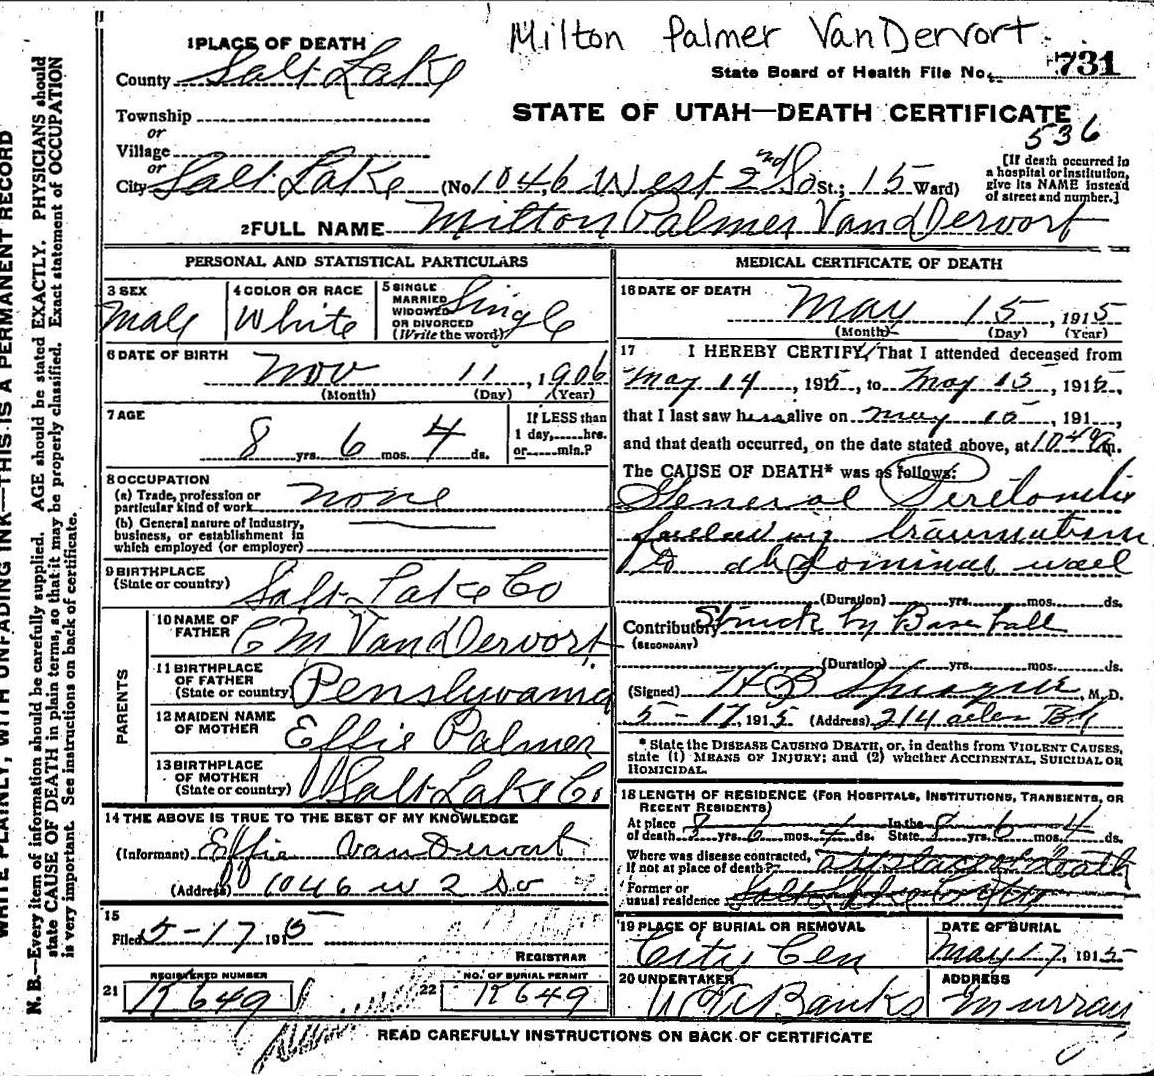 Milton Palmer VanDervort
1 PLACE OF DEATH
County Salt Lake
State Board of Health File No. 731
Township
or
Village
or
City Salt Lake (No. 1046 West 2nd So St.; 15 Ward)
STATE OF UTAH—DEATH CERTIFICATE
536
[If death occurred in
a hospital or institution,
give its NAME instead
of street and number.]
2 FULL NAME Milton Palmer VanDervort
PERSONAL AND STATISTICAL PARTICULARS
3 SEX
Male
4 COLOR OR RACE
White
5 SINGLE
MARRIED
WIDOWED
OR DIVORCED
(Write the word)
Single
6 DATE OF BIRTH
Nov 11, 1906
(Month) (Day) (Year)
7 AGE
8 yrs. 6 mos. 4 ds.
If LESS than
1 day,......hrs.
or......min.?
8 OCCUPATION
(a) Trade, profession or
particular kind of work none
(b) General nature of industry,
business, or establishment in
which employed (or employer)
9 BIRTHPLACE
(State or country) Salt Lake Co
PARENTS
10 NAME OF
FATHER C M VanDervort
11 BIRTHPLACE
OF FATHER
(State or country) Penslyvania
12 MAIDEN NAME
OF MOTHER Effie Palmer
13 BIRTHPLACE
OF MOTHER
(State or country) Salt Lake C.
14 THE ABOVE IS TRUE TO THE BEST OF MY KNOWLEDGE
(Informant) Effie VanDervort
(Address) 1046 W 2 So
15
Filed 5-17 1915
REGISTRAR
21 REGISTERED NUMBER
R649
22 NO. OF BURIAL PERMIT
R649
MEDICAL CERTIFICATE OF DEATH
16 DATE OF DEATH
May 15, 1915
(Month) (Day) (Year)
17 I HEREBY CERTIFY, That I attended deceased from
May 14, 1915, to May 15, 1915,
that I last saw h alive on May 15, 191
and that death occurred, on the date stated above, at 10 40 m.
The CAUSE OF DEATH* was as follows:
General Peritonitis
following traumatism
to abdominal wall
(Duration) yrs. mos. ds.
Contributory Struck by Base ball
(SECONDARY)
(Duration) yrs. mos. ds.
(Signed) Sprague, M. D.
5-17, 1915 (Address) 214
* State the DISEASE CAUSING DEATH, or, in deaths from VIOLENT CAUSES,
state (1) MEANS OF INJURY; and (2) whether ACCIDENTAL, SUICIDAL OR
HOMICIDAL.
18 LENGTH OF RESIDENCE (FOR HOSPITALS, INSTITUTIONS, TRANSIENTS, OR
RECENT RESIDENTS)
At place In the
of death 8 yrs. 6 mos. 4 ds. State 8 yrs. 6 mos. 4 ds.
Where was disease contracted,
if not at place of death? at place of death
Former or
usual residence Salt Lake
19 PLACE OF BURIAL OR REMOVAL
City Cem
DATE OF BURIAL
May 17, 1915
20 UNDERTAKER
Banks
ADDRESS
Murray
READ CAREFULLY INSTRUCTIONS ON BACK OF CERTIFICATE
WRITE PLAINLY, WITH UNFADING INK—THIS IS A PERMANENT RECORD
N. B.—Every item of information should be carefully supplied. AGE should be stated EXACTLY. PHYSICIANS should
state CAUSE OF DEATH in plain terms, so that it may be properly classified. Exact statement of OCCUPATION
is very important. See instructions on back of certificate.